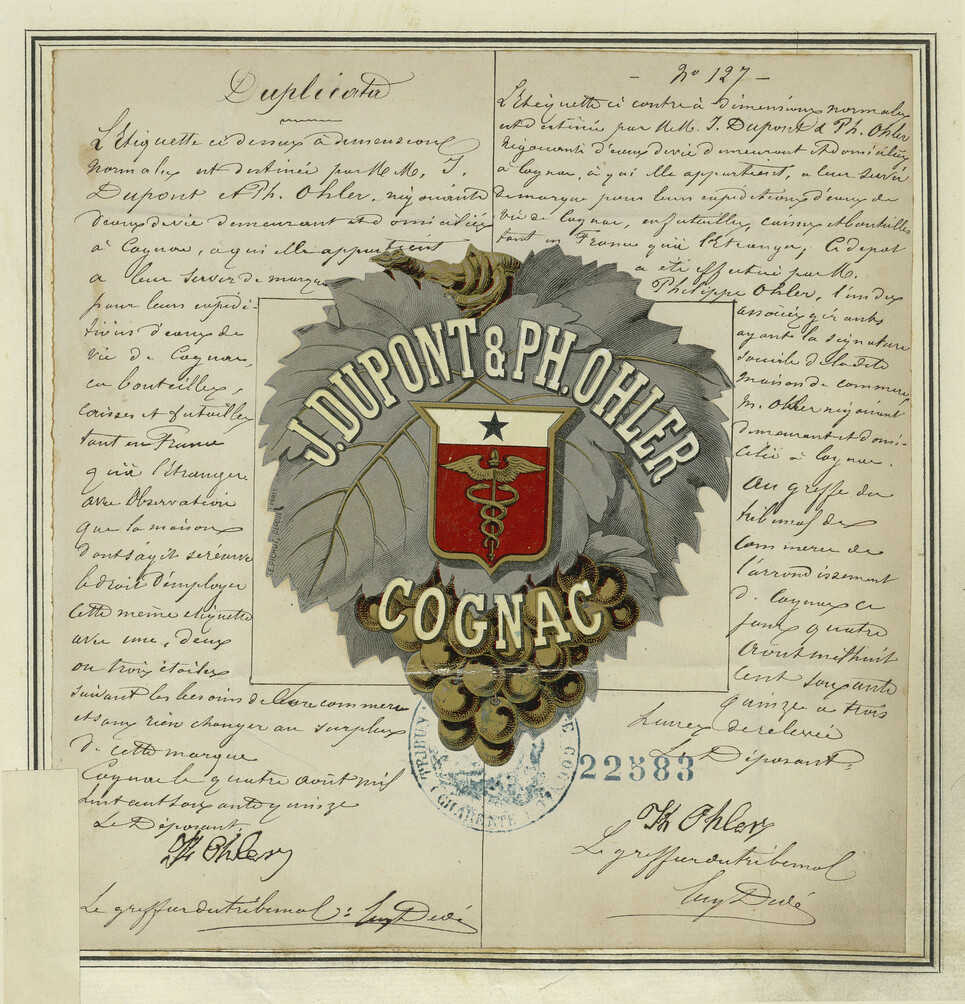 Duplicata
L'Etiquette ci dessus à dimensions
normales est destinée par M.M. J.
Dupont et Ph. Ohler, négociants
d'eaux de vie demeurant et domiciliés
à Cognac, à qui elle appartient
a leur servir de marque
pour leurs expédi-
tions d'eaux de
vie de Cognac,
en bouteilles,
caisses et futailles
tant en France
qu'à l'étranger
avec Observation
que la maison
dont s'agit se réserve
le droit d'employer
cette même etiquette
avec une, deux
ou trois étoiles
suivant les besoins de commerce
et sans rien changer au surplus
de cette marque
Cognac le quatre août mil
huit cent soixante quinze
Le Déposant,
Ph Ohler
Le greffier du tribunal:
- No 127 -
L'Etiquette ci contre à dimensions normales
est destinée par M.M. J. Dupont & Ph. Ohler
négociants d'eaux de vie demeurant et domiciliés
à Cognac, à qui elle appartient, a leur servir
de marque pour leurs expéditions d'eaux de
vie de Cognac, en futailles, caisses et bouteilles
tant en France qu'à l'étranger; ce dépot
a été effectué par M.
Philippe Ohler, l'un des
associés gérants
ayant la signature
sociale de la dite
maison de commerce
M. Ohler négociant
demeurant et domi-
cilié à Cognac.
Au greffe du
tribunal de
commerce de
l'arrondissement
de Cognac ce
jour quatre
août mil huit
cent soixante
quinze à trois
heures de relevée
Le Déposant
Ph Ohler
Le greffier du tribunal
J. DUPONT & PH. OHLER
COGNAC
22583